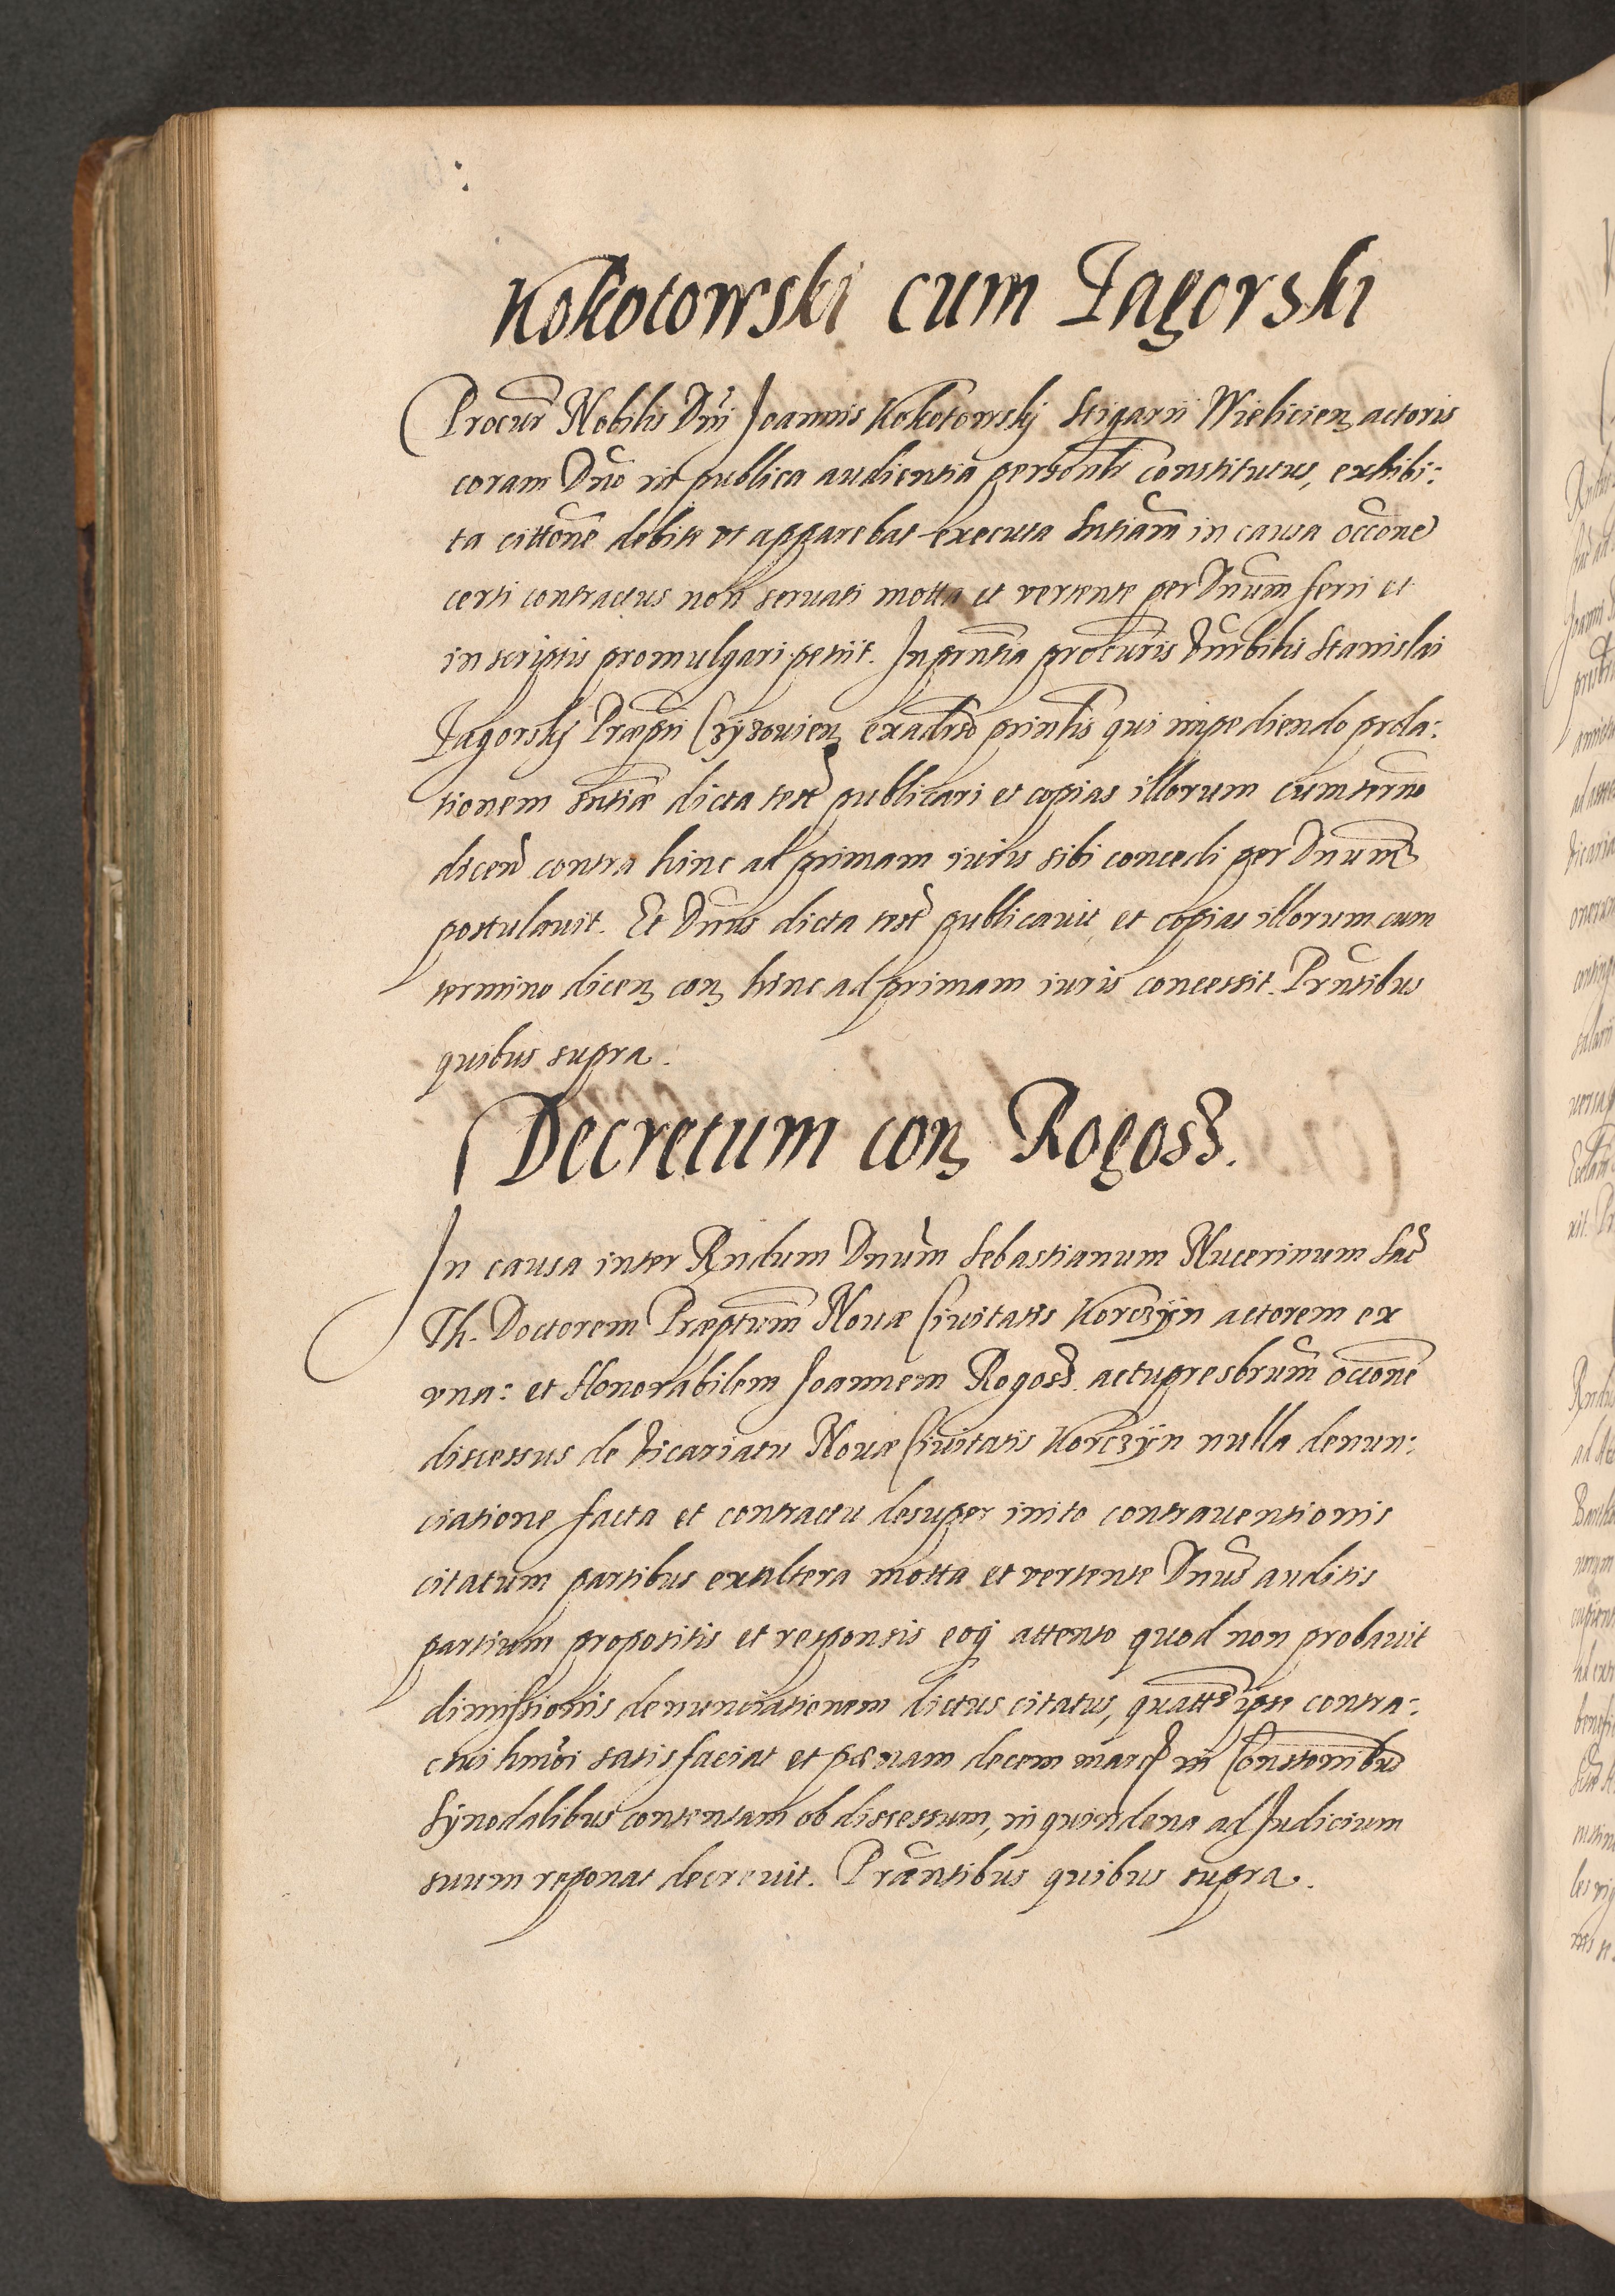 Kokotowski cum Zagorski
Procur Nobilis Dni Joannis Kokotowskij Stigarii Wieliciens actoris
coram Dno in publica audientia personlr constitutus, exhibi:
ta cittone debite ut apparebat executa Sntiam in causa occone
certi contractus non seruati motta et vertente per Dnum ferri et
in scriptis promulgari petiit. In pntia procuris Vnrbilis Stanislai
Zagorskij Præpti Czyzouien ex aduso principlis qui impediendo prola:
tionem sntiæ dicta test publicari et copias illorum cum termo
dicend contra hinc ad primam iuris sibi concedi per Dnum
postulauit. Et Dnus dicta test publicauit, et copias illorum cum
termino dicenz conz hinc ad primam iuris concessit. Prntibus
quibus supra.
Decretum conz Rogoss.
In causa inter Rndum Dnum Sebastianum Nucerinum Sac
Th. Doctorem Præptum Nouæ Ciuitatis Korczÿn actorem ex
vna: et Honorabilem Joannem Rogoss. actu presbrum occone
discessus de Vicariatu Nouæ Ciuitatis Korczÿn nulla denun:
ciatione facta et contractu desuper inito contrauentionis
citatum partibus ex altera motta et vertente Dnus auditis
partium propositis et responsis eoq attento quod non probauit
dimissionis denunciationem dictus citatus, quatts ipse contra:
ctui hmoi satisfaciat et pænam decem marc in Constonibus
Synodalibus contentam ob discessum, in quindena ad Judicium
suum reponat decreuit. Præntibus quibus supra.